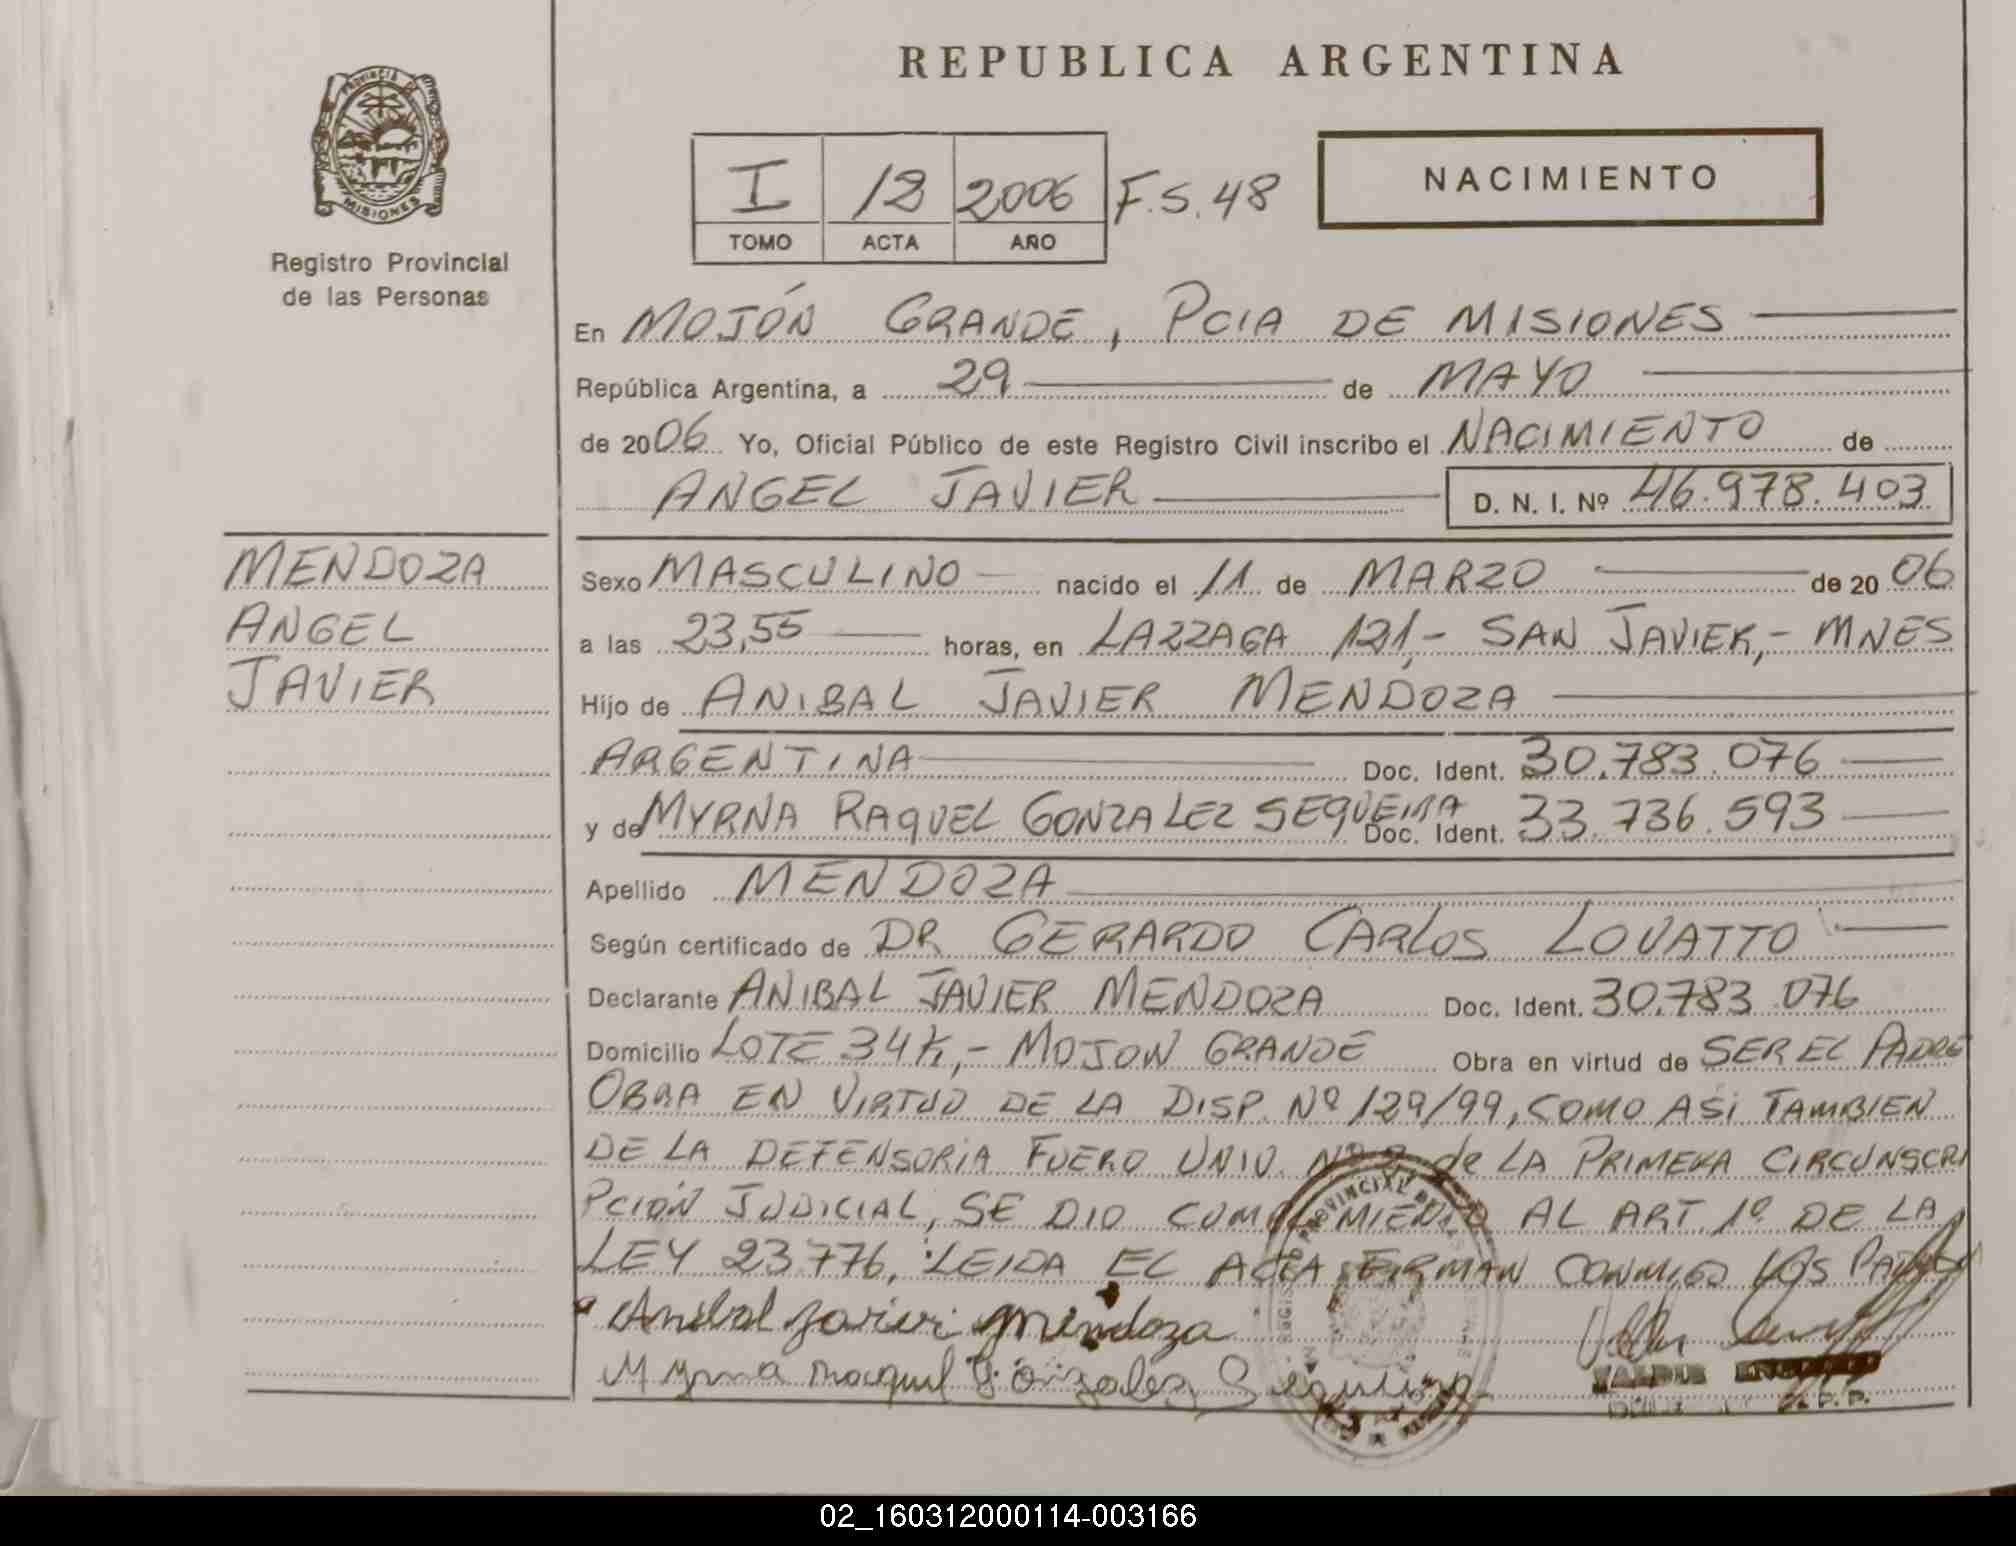 REPUBLICA ARGENTINA
PROVINCIA DE MISIONES
Registro Provincial
de las Personas
I 12 2006 F.S. 48
TOMO ACTA AÑO
NACIMIENTO
En MOJÓN GRANDE, PCIA DE MISIONES
República Argentina, a 29 de MAYO
de 2006 Yo, Oficial Público de este Registro Civil inscribo el NACIMIENTO de
ANGEL JAVIER D. N. I. Nº 46.978.403
MENDOZA
ANGEL
JAVIER
Sexo MASCULINO nacido el 11 de MARZO de 2006
a las 23,55 horas, en LAZZAGA 121,- SAN JAVIER,- MNES
Hijo de ANIBAL JAVIER MENDOZA
ARGENTINA Doc. Ident. 30.783.076
y de MYRNA RAQUEL GONZALEZ SEQUEIRA Doc. Ident. 33.736.593
Apellido MENDOZA
Según certificado de DR GERARDO CARLOS LOVATTO
Declarante ANIBAL JAVIER MENDOZA Doc. Ident. 30.783.076
Domicilio LOTE 34K,- MOJON GRANDE Obra en virtud de SER EL PADRE
OBRA EN VIRTUD DE LA DISP. Nº 129/99, COMO ASi TAMBIEN
DE LA DEFENSORiA FUERO UNIV. Nº 2 de LA PRIMERA CIRCUNSCRI
PCIÓN JUDICIAL, SE DIO CUMPLIMIENTO AL ART. 1º DE LA
LEY 23776, LEIDA EL ACTA FIRMAN CONMIGO LOS PADRES
Anibal Javier Mendoza
Myrna Raquel Gonzalez Sequeira
VALDIR
02_160312000114-003166